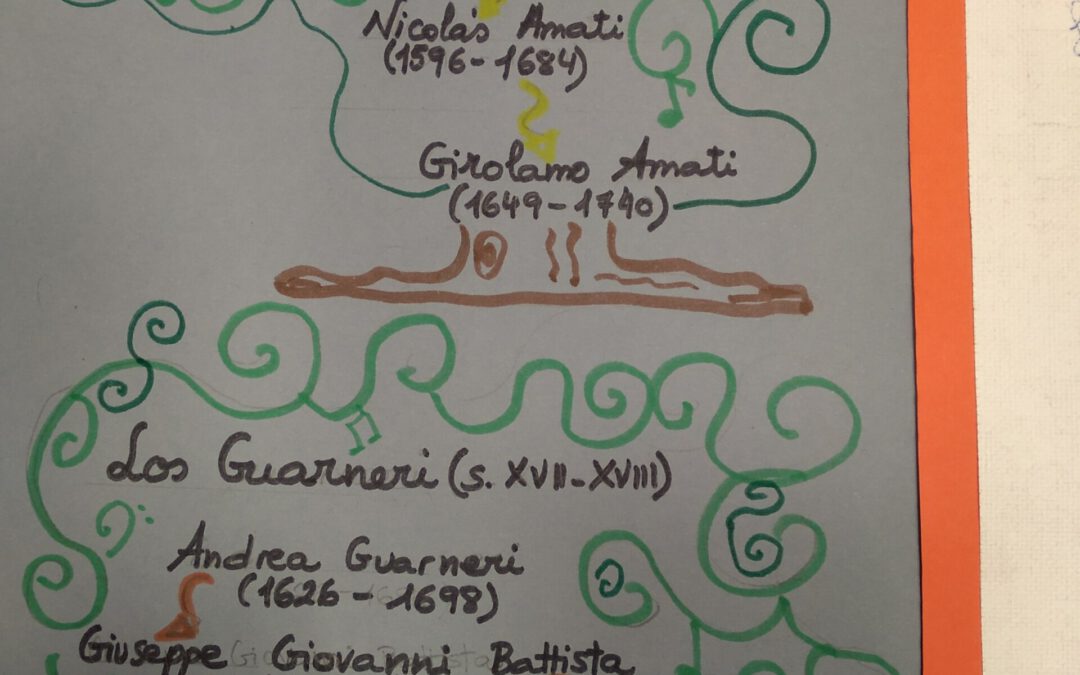 Nicolás Amati
(1596-1684)
Girolamo Amati
(1649-1740)
Los Guarneri (s. XVII-XVIII)
Andrea Guarneri
(1626-1698)
Giuseppe Giovanni Battista